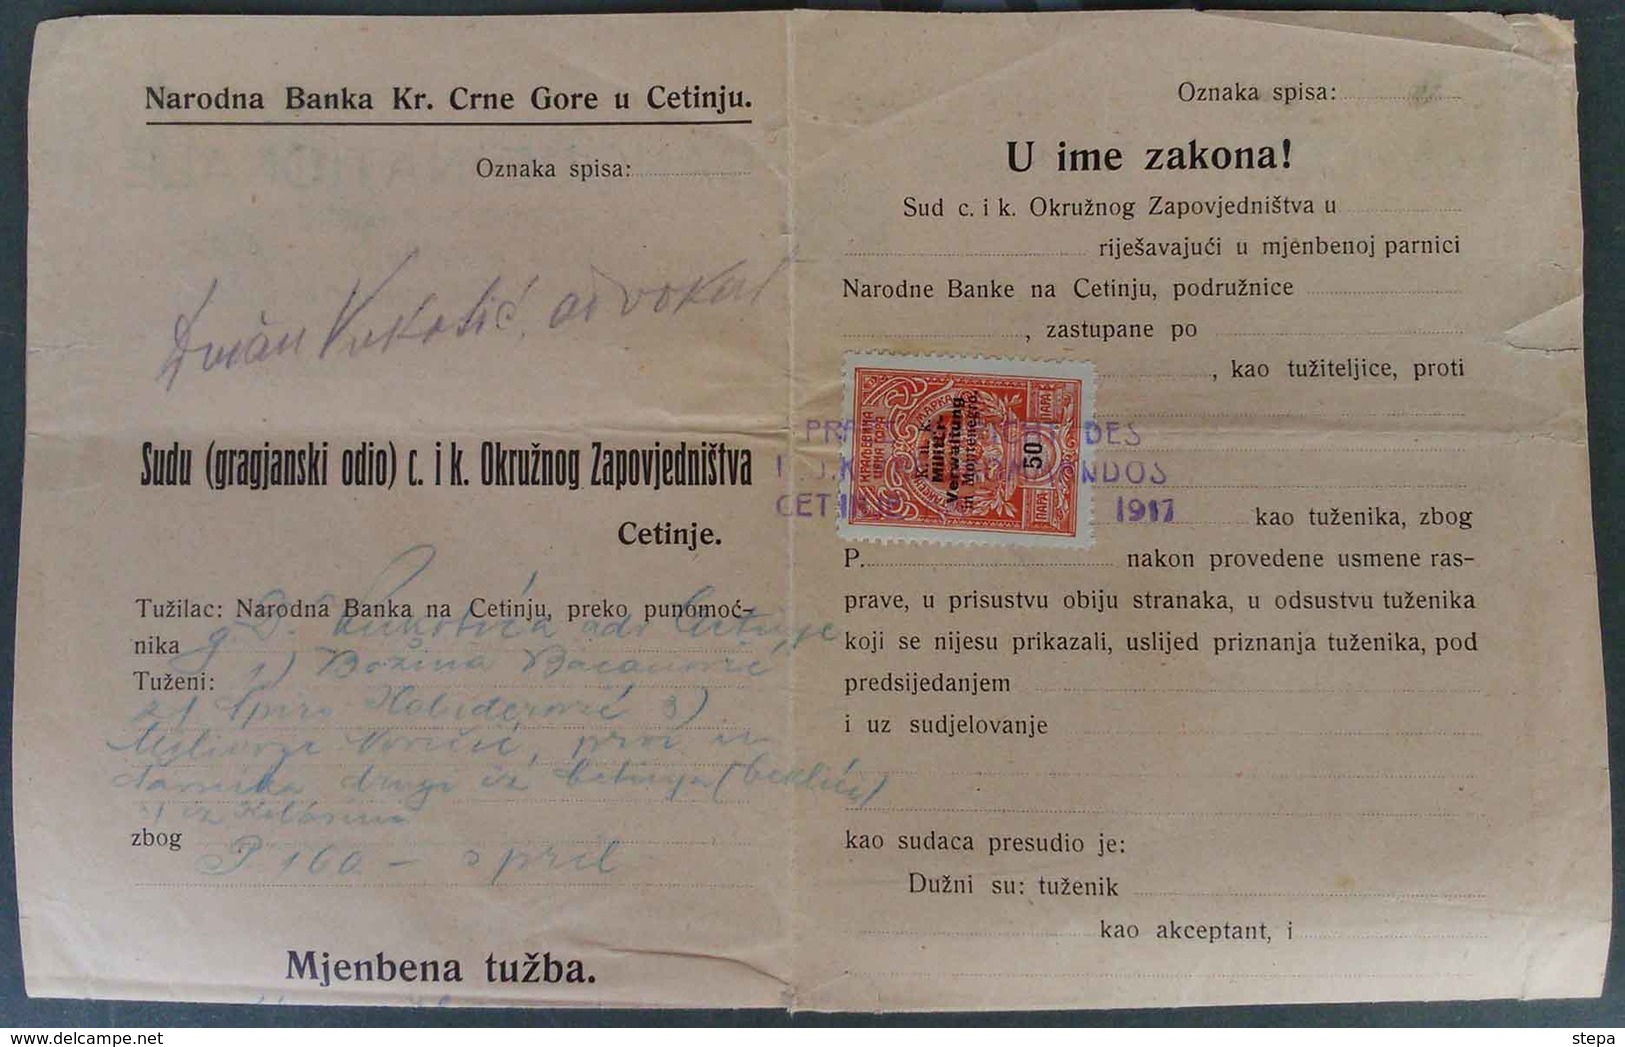 Narodna Banka Kr. Crne Gore u Cetinju.
Oznaka spisa:
Dušan Vukotić, advokat
Sudu (gragjanski odio) c. i k. Okružnog Zapovjedništva
Cetinje.
Tužilac: Narodna Banka na Cetinju, preko punomoć-
nika g. D. Vukotića adv Cetinje
Tuženi: 1) Božina Bacanović
2) Spiro 3)
Milivoje prvi iz
drugi iz Cetinja
3) iz Kolašina
zbog P 160 –
Mjenbena tužba.
Oznaka spisa:
U ime zakona!
Sud c. i k. Okružnog Zapovjedništva u
riješavajući u mjenbenoj parnici
Narodne Banke na Cetinju, podružnice
, zastupane po
, kao tužiteljice, proti
КРАЉЕВИНА
ЦРНА ГОРА
МАРКА
K. u. K.
Militär-
Verwaltung
in Montenegro.
50
ПАРА
ПАРА
DES
CETINJE 1917
kao tuženika, zbog
P. nakon provedene usmene ras-
prave, u prisustvu obiju stranaka, u odsustvu tuženika
koji se nijesu prikazali, uslijed priznanja tuženika, pod
predsijedanjem
i uz sudjelovanje
kao sudaca presudio je:
Dužni su: tuženik
kao akceptant, i
stepa